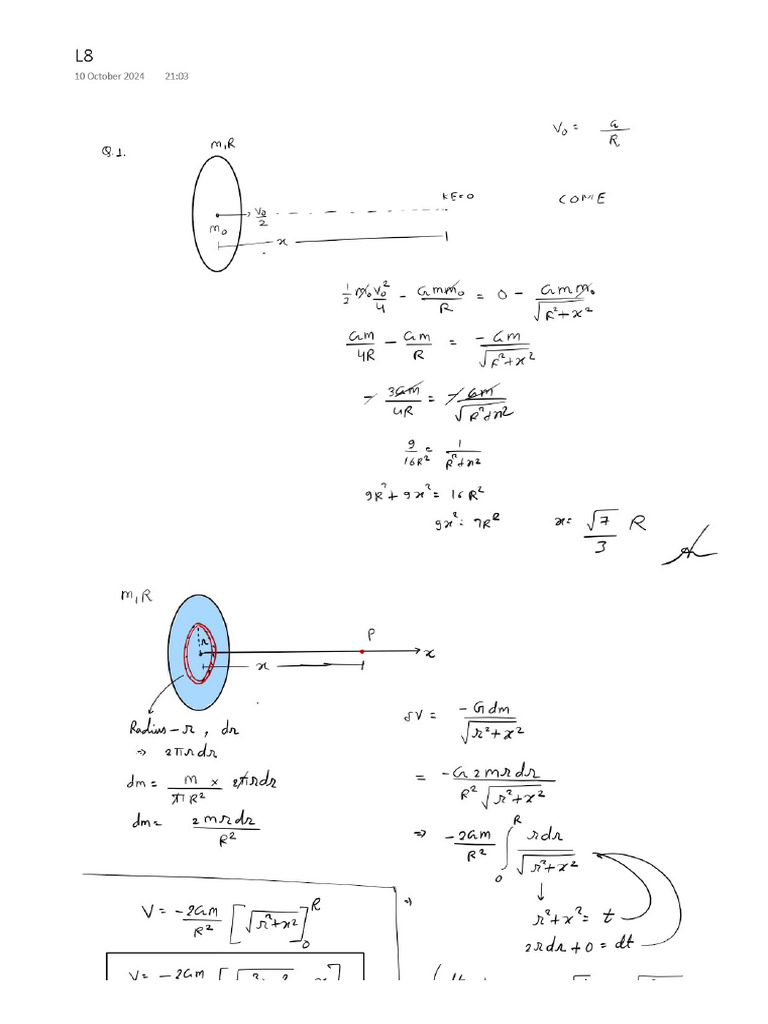 L8
10 October 2024 21:03
Q.1.
m,R
V₀ = G/R
m₀
V₀/2
KE=0
COME
x
1/2 m₀V₀²/4 - Gmm₀/R = 0 - Gmm₀/√(R²+x²)
Gm/4R - Gm/R = -Gm/√(R²+x²)
- 3Gm/4R = - Gm/√(R²+x²)
9/16R² = 1/(R²+x²)
9R²+9x² = 16R²
9x² = 7R²
x = √7/3 R
m,R
r
P
x
x
Radius - r, dr
⇒ 2πrdr
dm = m/πR² × 2πrdr
dm = 2mrdr/R²
dV = -Gdm/√(r²+x²)
= -G2mrdr/R²√(r²+x²)
⇒ -2Gm/R² ∫₀ᴿ rdr/√(r²+x²)
↓
r²+x² = t
2rdr+0 = dt
V = -2Gm/R² [√(r²+x²)]₀ᴿ
⇒